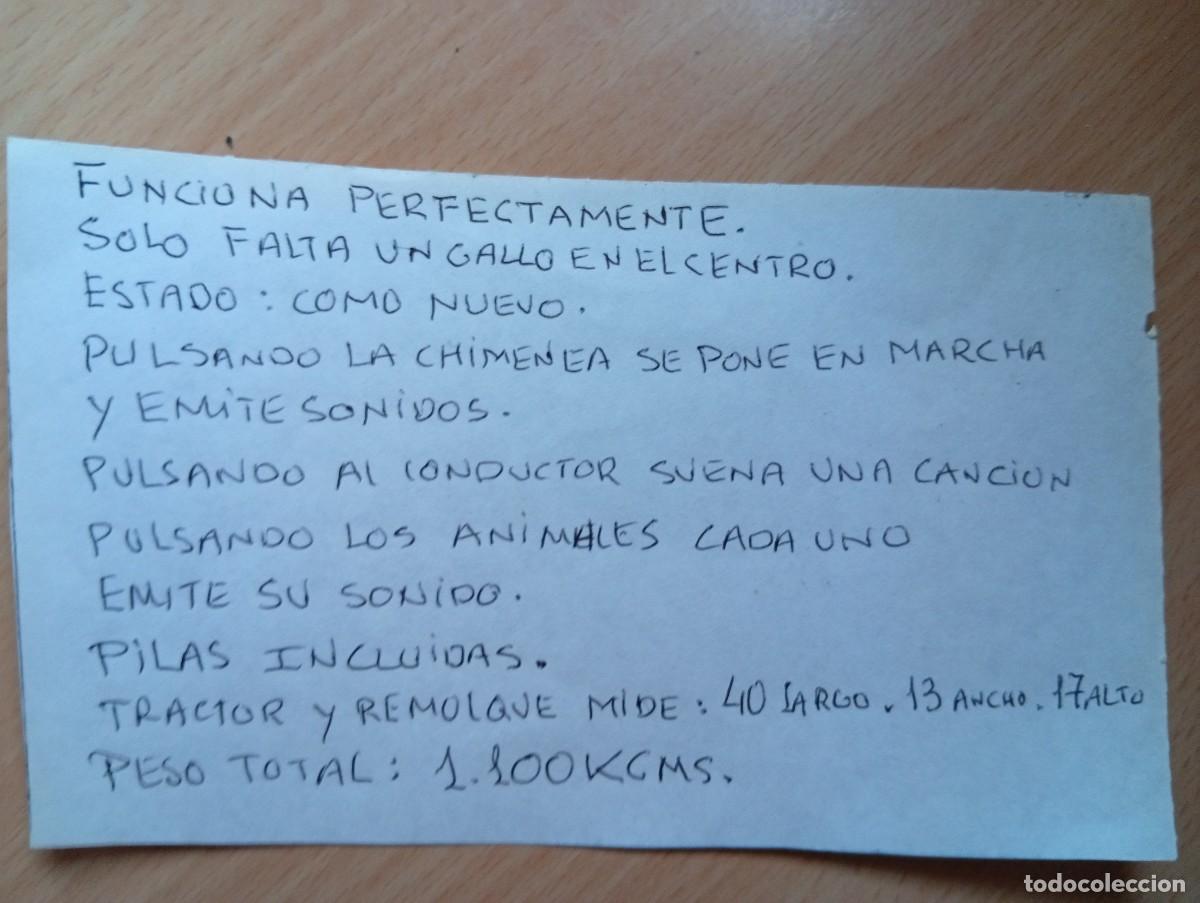 FUNCIONA PERFECTAMENTE.
SOLO FALTA UN GALLO EN EL CENTRO.
ESTADO: COMO NUEVO.
PULSANDO LA CHIMENEA SE PONE EN MARCHA
Y EMITE SONIDOS.
PULSANDO AL CONDUCTOR SUENA UNA CANCION
PULSANDO LOS ANIMALES CADA UNO
EMITE SU SONIDO.
PILAS INCLUIDAS.
TRACTOR Y REMOLQUE MIDE: 40 LARGO. 13 ANCHO. 17 ALTO
PESO TOTAL: 1.100 KGMS.
todocoleccion